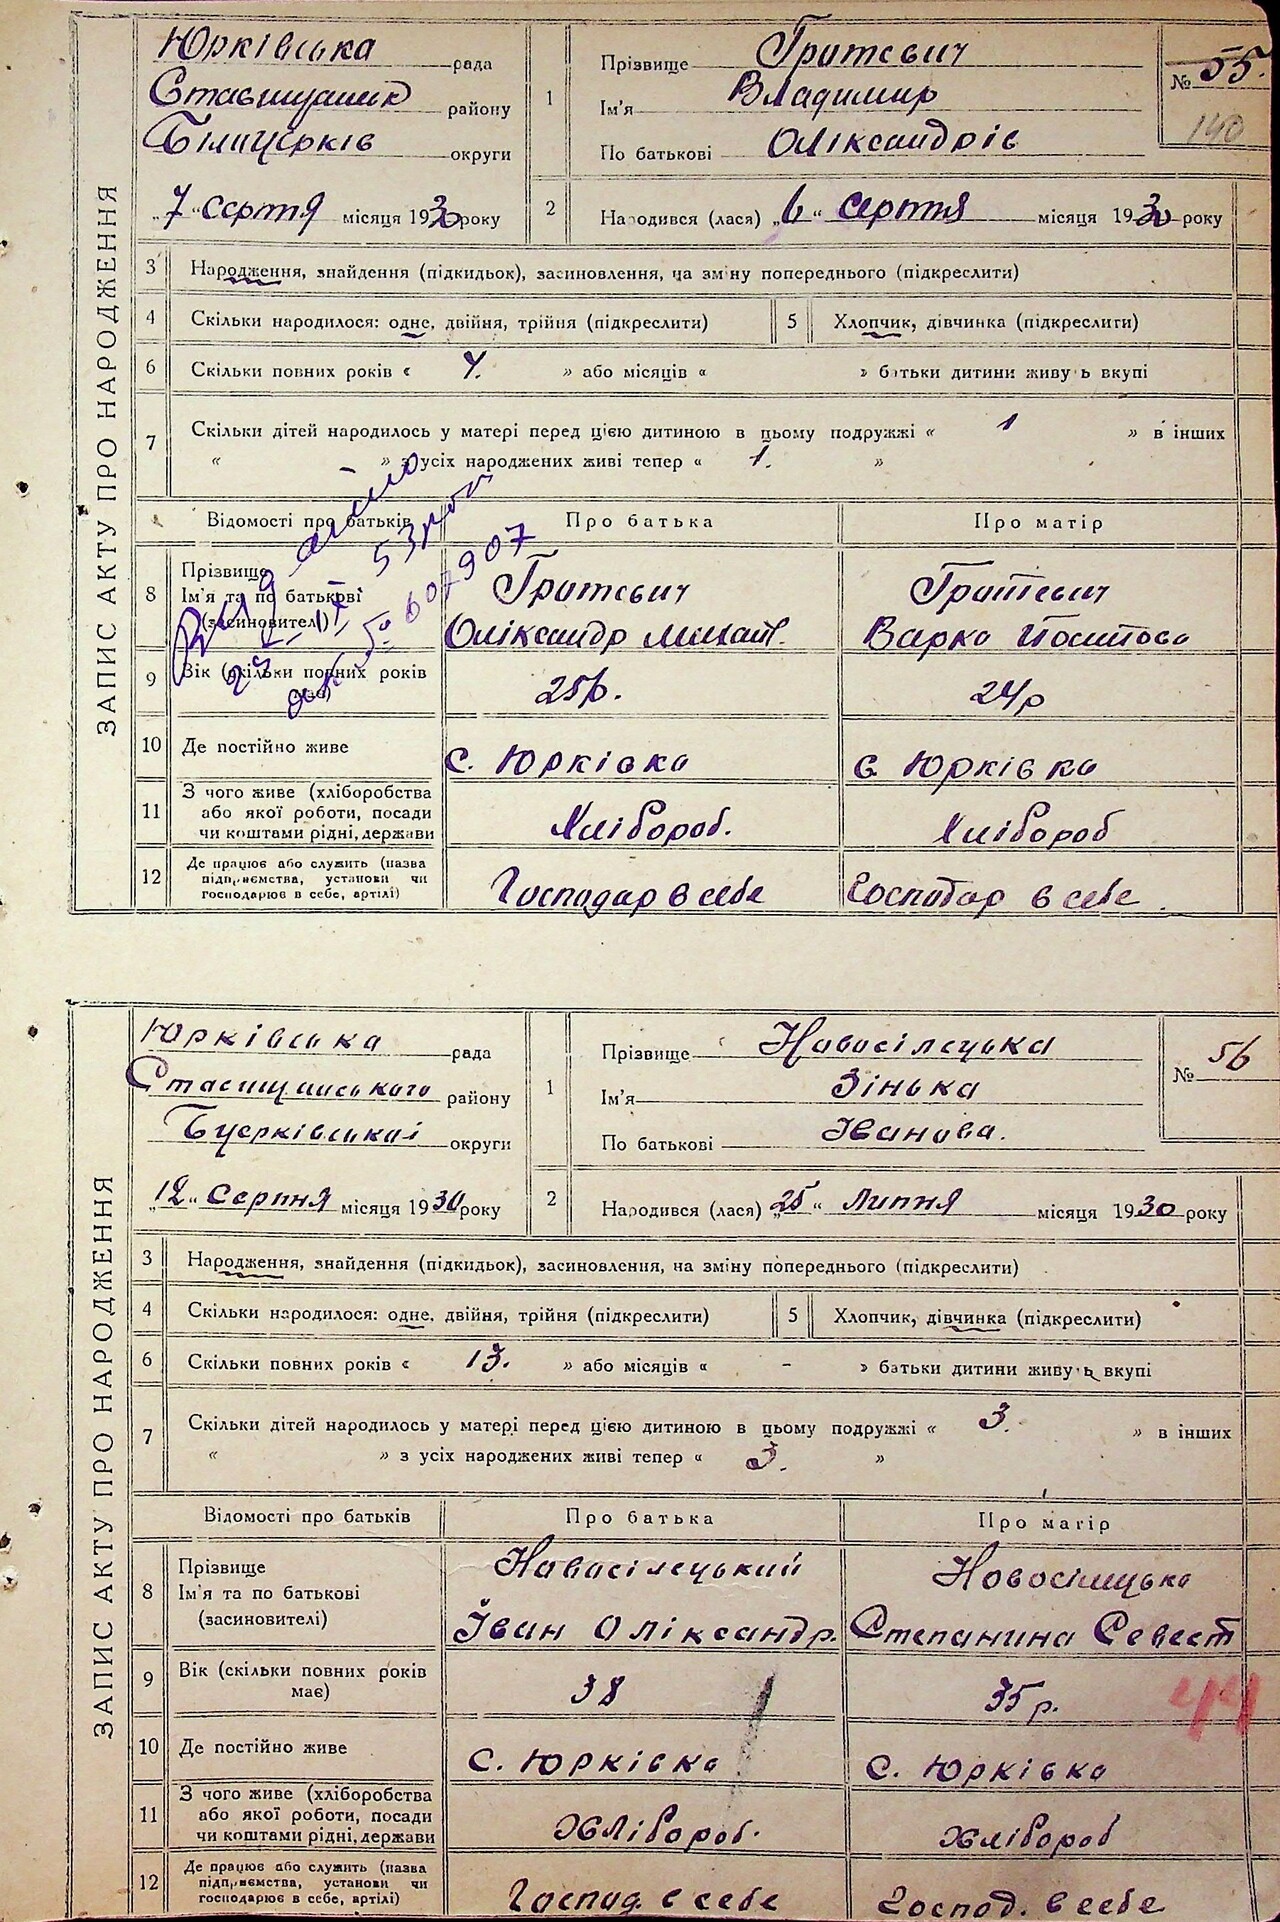 ЗАПИС АКТУ ПРО НАРОДЖЕННЯ
Юрківська рада
Ставищанськ району
Білицерків округи
„7“ серпня місяця 1930 року
1 Прізвище Гритсвич
Ім'я Владимир
По батькові Оліксандрів
№ 55.
140
2 Народився (лася) „6“ серпня місяця 1930 року
3 Народження, знайдення (підкидьок), засиновлення, на зміну попереднього (підкреслити)
4 Скільки народилося: одне, двійня, трійня (підкреслити) 5 Хлопчик, дівчинка (підкреслити)
6 Скільки повних років « 4. » або місяців « » батьки дитини живуть вкупі
7 Скільки дітей народилось у матері перед цією дитиною в цьому подружжі « 1 » в інших
« » з усіх народжених живі тепер « 1. »
Відомості про батьків Про батька Про матір
53 607907
8 Прізвище Гритсвич Гритсвич
Ім'я та по батькові
(засиновителі) Оліксандр Михайл. Варка
9 Вік (скільки повних років має) 25р. 24р
10 Де постійно живе с. Юрківка с. Юрківка
11 З чого живе (хліборобства
або якої роботи, посади
чи коштами рідні, держави Хлібороб. Хлібороб
12 Де працює або служить (назва
підприємства, установи чи
господарює в себе, артілі) Господар в себе Господар в себе.
ЗАПИС АКТУ ПРО НАРОДЖЕННЯ
Юрківська рада
Ставищанського району
Бцерківської округи
„12“ Серпня місяця 1930 року
1 Прізвище Новосілецька
Ім'я Зінька
По батькові Іванова.
№ 56
2 Народився (лася) „25“ Липня місяця 1930 року
3 Народження, знайдення (підкидьок), засиновлення, на зміну попереднього (підкреслити)
4 Скільки народилося: одне, двійня, трійня (підкреслити) 5 Хлопчик, дівчинка (підкреслити)
6 Скільки повних років « 13. » або місяців « - » батьки дитини живуть вкупі
7 Скільки дітей народилось у матері перед цією дитиною в цьому подружжі « 3. » в інших
« » з усіх народжених живі тепер « 3. »
Відомості про батьків Про батька Про матір
8 Прізвище Новосілецький Новосілицька
Ім'я та по батькові
(засиновителі) Іван Оліксандр. Степанина Севест
9 Вік (скільки повних років має) 38 35р.
10 Де постійно живе с. Юрківка с. Юрківка
11 З чого живе (хліборобства
або якої роботи, посади
чи коштами рідні, держави Хлібороб. Хлібороб
12 Де працює або служить (назва
підприємства, установи чи
господарює в себе, артілі) Господ. в себе Господ. в себе